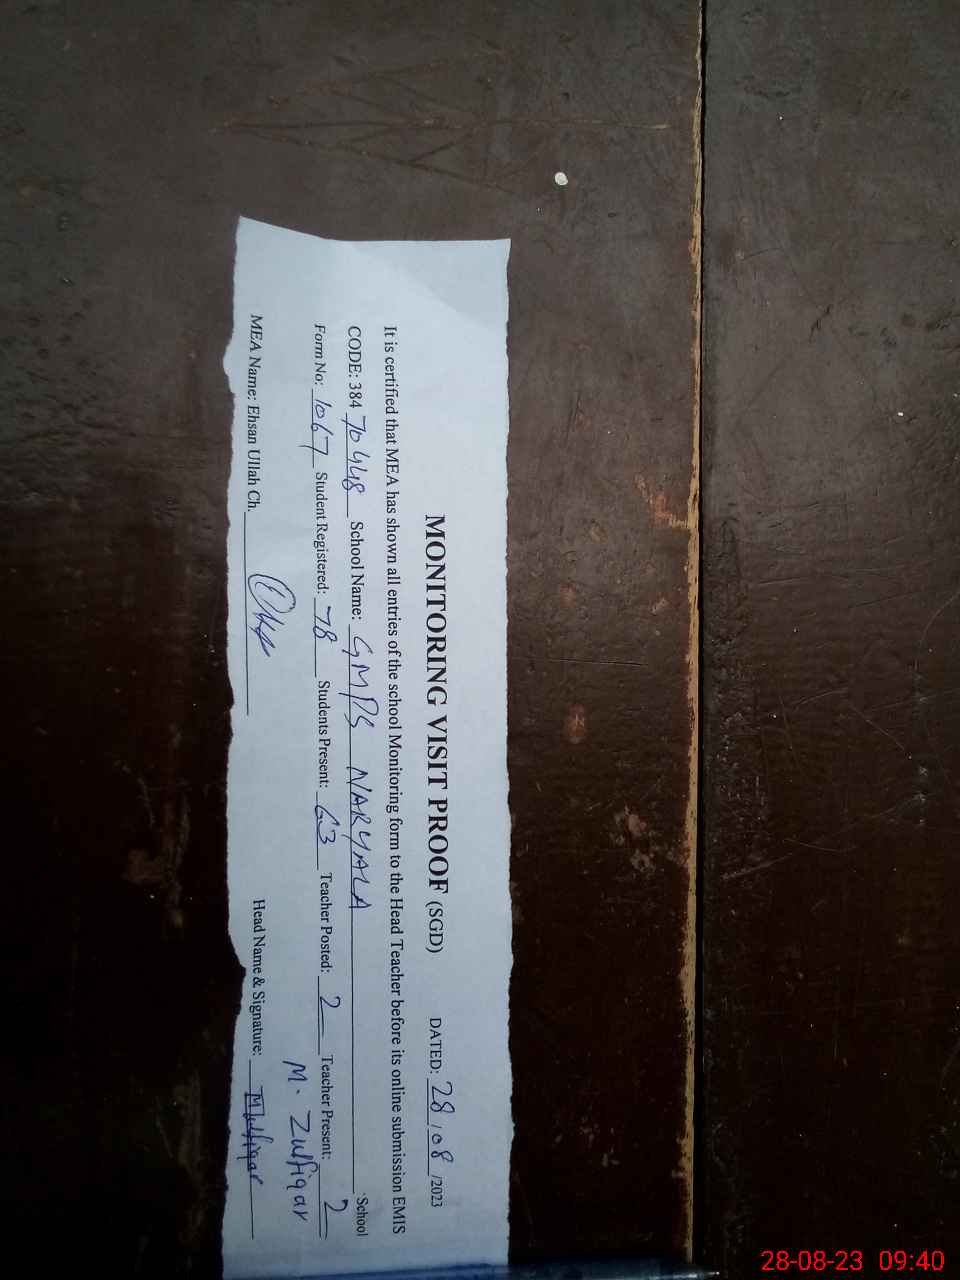 MONITORING VISIT PROOF (SGD) DATED: 28/08/2023
It is certified that MEA has shown all entries of the school Monitoring form to the Head Teacher before its online submission EMIS
CODE: 384 70448 School Name: GMPS NARYALA School
Form No: 1067 Student Registered: 78 Students Present: 63 Teacher Posted: 2 Teacher Present: 2
M. Zulfiqar
MEA Name: Ehsan Ullah Ch. Head Name & Signature:
28-08-23 09:40